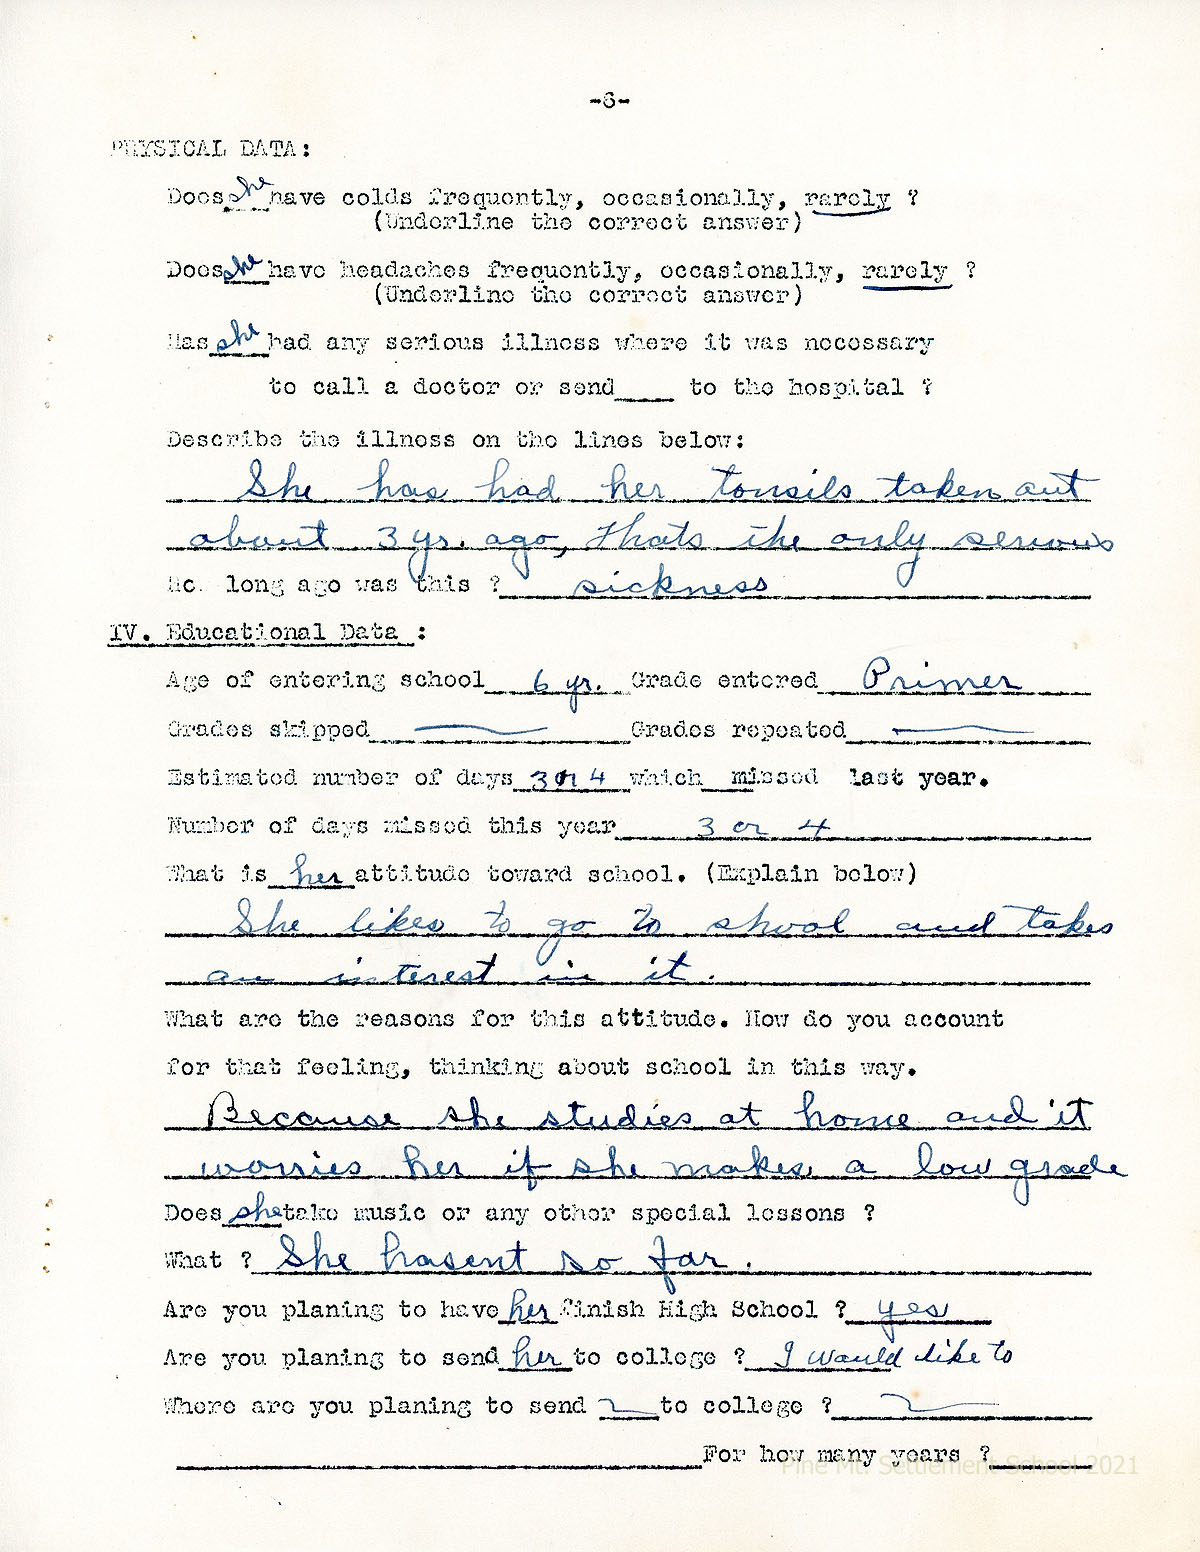 -6-
PHYSICAL DATA:
Does she have colds frequently, occasionally, rarely ?
(Underline the correct answer)
Does she have headaches frequently, occasionally, rarely ?
(Underline the correct answer)
Has she had any serious illness where it was necessary
to call a doctor or send____ to the hospital ?
Describe the illness on the lines below:
She has had her tonsils taken out
about 3 yr. ago, thats the only serious
Ho. long ago was this ? sickness
IV. Educational Data :
Age of entering school 6 yr. Grade entered Primer
Grades skipped — Grades repeated —
Estimated number of days 3 or 4 which ____ missed last year.
Number of days missed this year 3 or 4
What is her attitude toward school. (Explain below)
She likes to go to shool and takes
an interest in it.
What are the reasons for this attitude. How do you account
for that feeling, thinking about school in this way.
Because she studies at home and it
worries her if she makes a low grade
Does she take music or any other special lessons ?
What ? She hasent so far.
Are you planing to have her finish High School ? yes
Are you planing to send her to college ? I would like to
Where are you planing to send ____ to college ?
For how many years ?
Pine Mt. Settlement School 2021